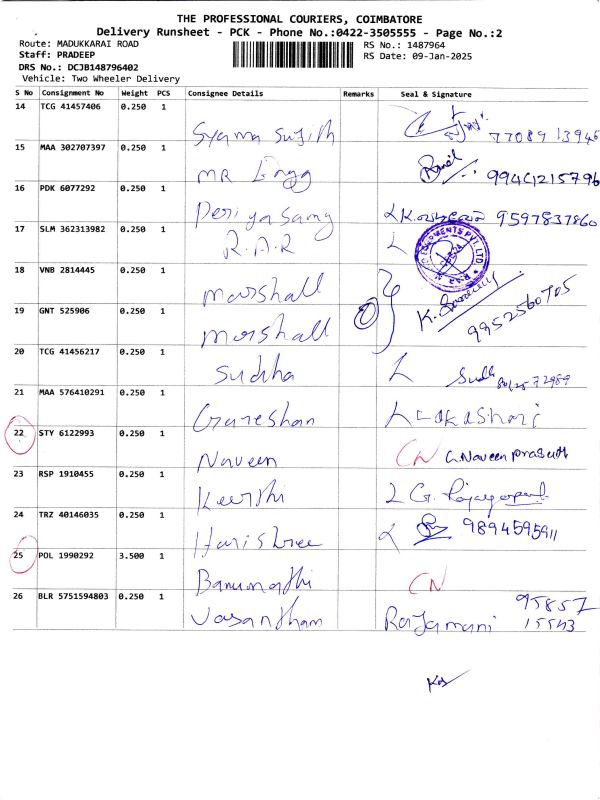 THE PROFESSIONAL COURIERS, COIMBATORE
Delivery Runsheet - PCK - Phone No.:0422-3505555 - Page No.:2
Route: MADUKKARAI ROAD RS No.: 1487964
Staff: PRADEEP RS Date: 09-Jan-2025
DRS No.: DCJB148796402
Vehicle: Two Wheeler Delivery
S No Consignment No Weight PCS Consignee Details Remarks Seal & Signature
14 TCG 41457406 0.250 1
Syama Sujith
15 MAA 302707397 0.250 1
MR Engg
16 PDK 6077292 0.250 1
Periyasamy 9597837860
17 SLM 362313982 0.250 1
R.A.R
18 VNB 2814445 0.250 1
marshall
19 GNT 525906 0.250 1
marshall 9952560705
20 TCG 41456217 0.250 1
Sudha Sudh
21 MAA 576410291 0.250 1
Ganeshan
22 STY 6122993 0.250 1
Naveen CN G.Naveen prasath
23 RSP 1910455 0.250 1
Keerthi G. Rajagopal
24 TRZ 40146035 0.250 1
Harishree 9894595911
25 POL 1990292 3.500 1
Banumathi CN
26 BLR 5751594803 0.250 1
Vasantham Rajamani 95857
15543